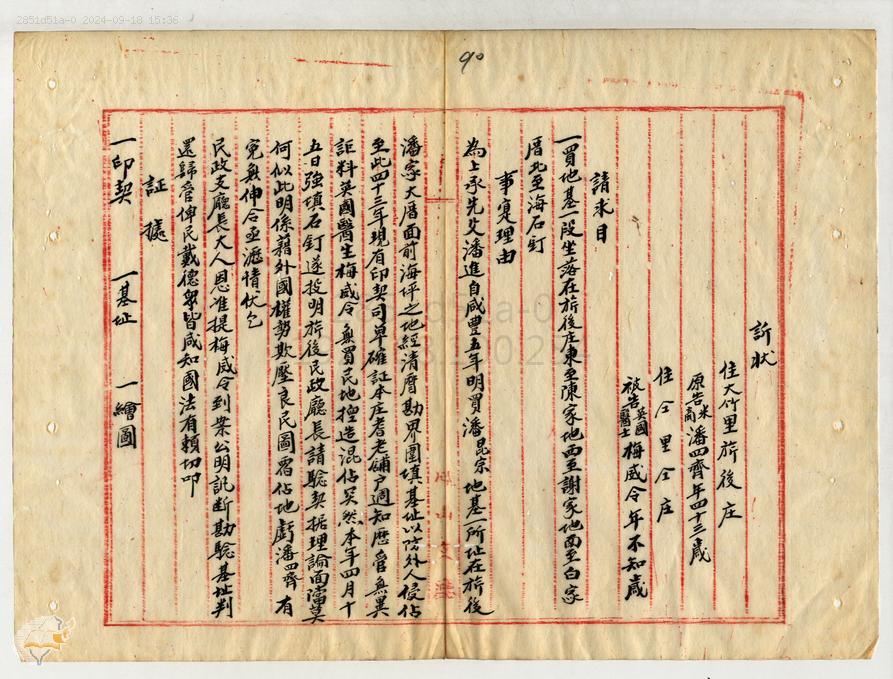 2851d51a-0 2024-09-18 15:36
90
訴状
住大竹里旂後庄
原告米商潘四齊年四十三歲
住仝里仝庄
被告英國醫士梅威令年不知歲
請求目
一買地基一段坐落在旂後庄東至陳家地西至謝家地南至白家
厝北至海石釘
事寔理由
為上承先父潘進自咸豊五年明買潘昆宗地基一所址在旂後
潘家大厝面前海坪之地經清厝勘界圍填基址以防外人侵佔
至此四十三年現有印契司单確証本庄耆老舖户週知歷管無異
詎料英國醫生梅威令無買民地揑造混佔突然本年四月十
五日強填石釘遂投明旂後民政廳長請驗契据理論面諭莫
何似此明係藉外國權勢欺壓良民圖霸佔地虧潘四齊有
冤無伸合亟瀝情伏乞
民政支廳長大人恩准提梅威令到案公明訊断勘驗基址判
還歸管俾民戴德衆皆咸知國法有賴切叩
証據
一印契 一基址 一繪圖